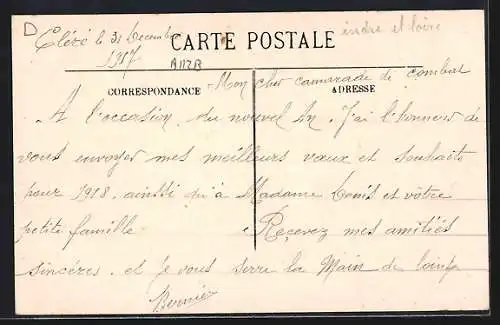 D
Cléré le 31 Decembre
1917
CARTE POSTALE
indre et loire
A112B
Mon cher camarade de combat
CORRESPONDANCE
ADRESSE
A l'occasion du nouvel An. J'ai l'honneur de
vous envoyer mes meilleurs vœux et souhaits
pour 1918. ainssi qu'à Madame Denis et vôtre
petite famille. Reçevez mes amitiés
sincéres. et je vous serre la Main de loin
Bernier